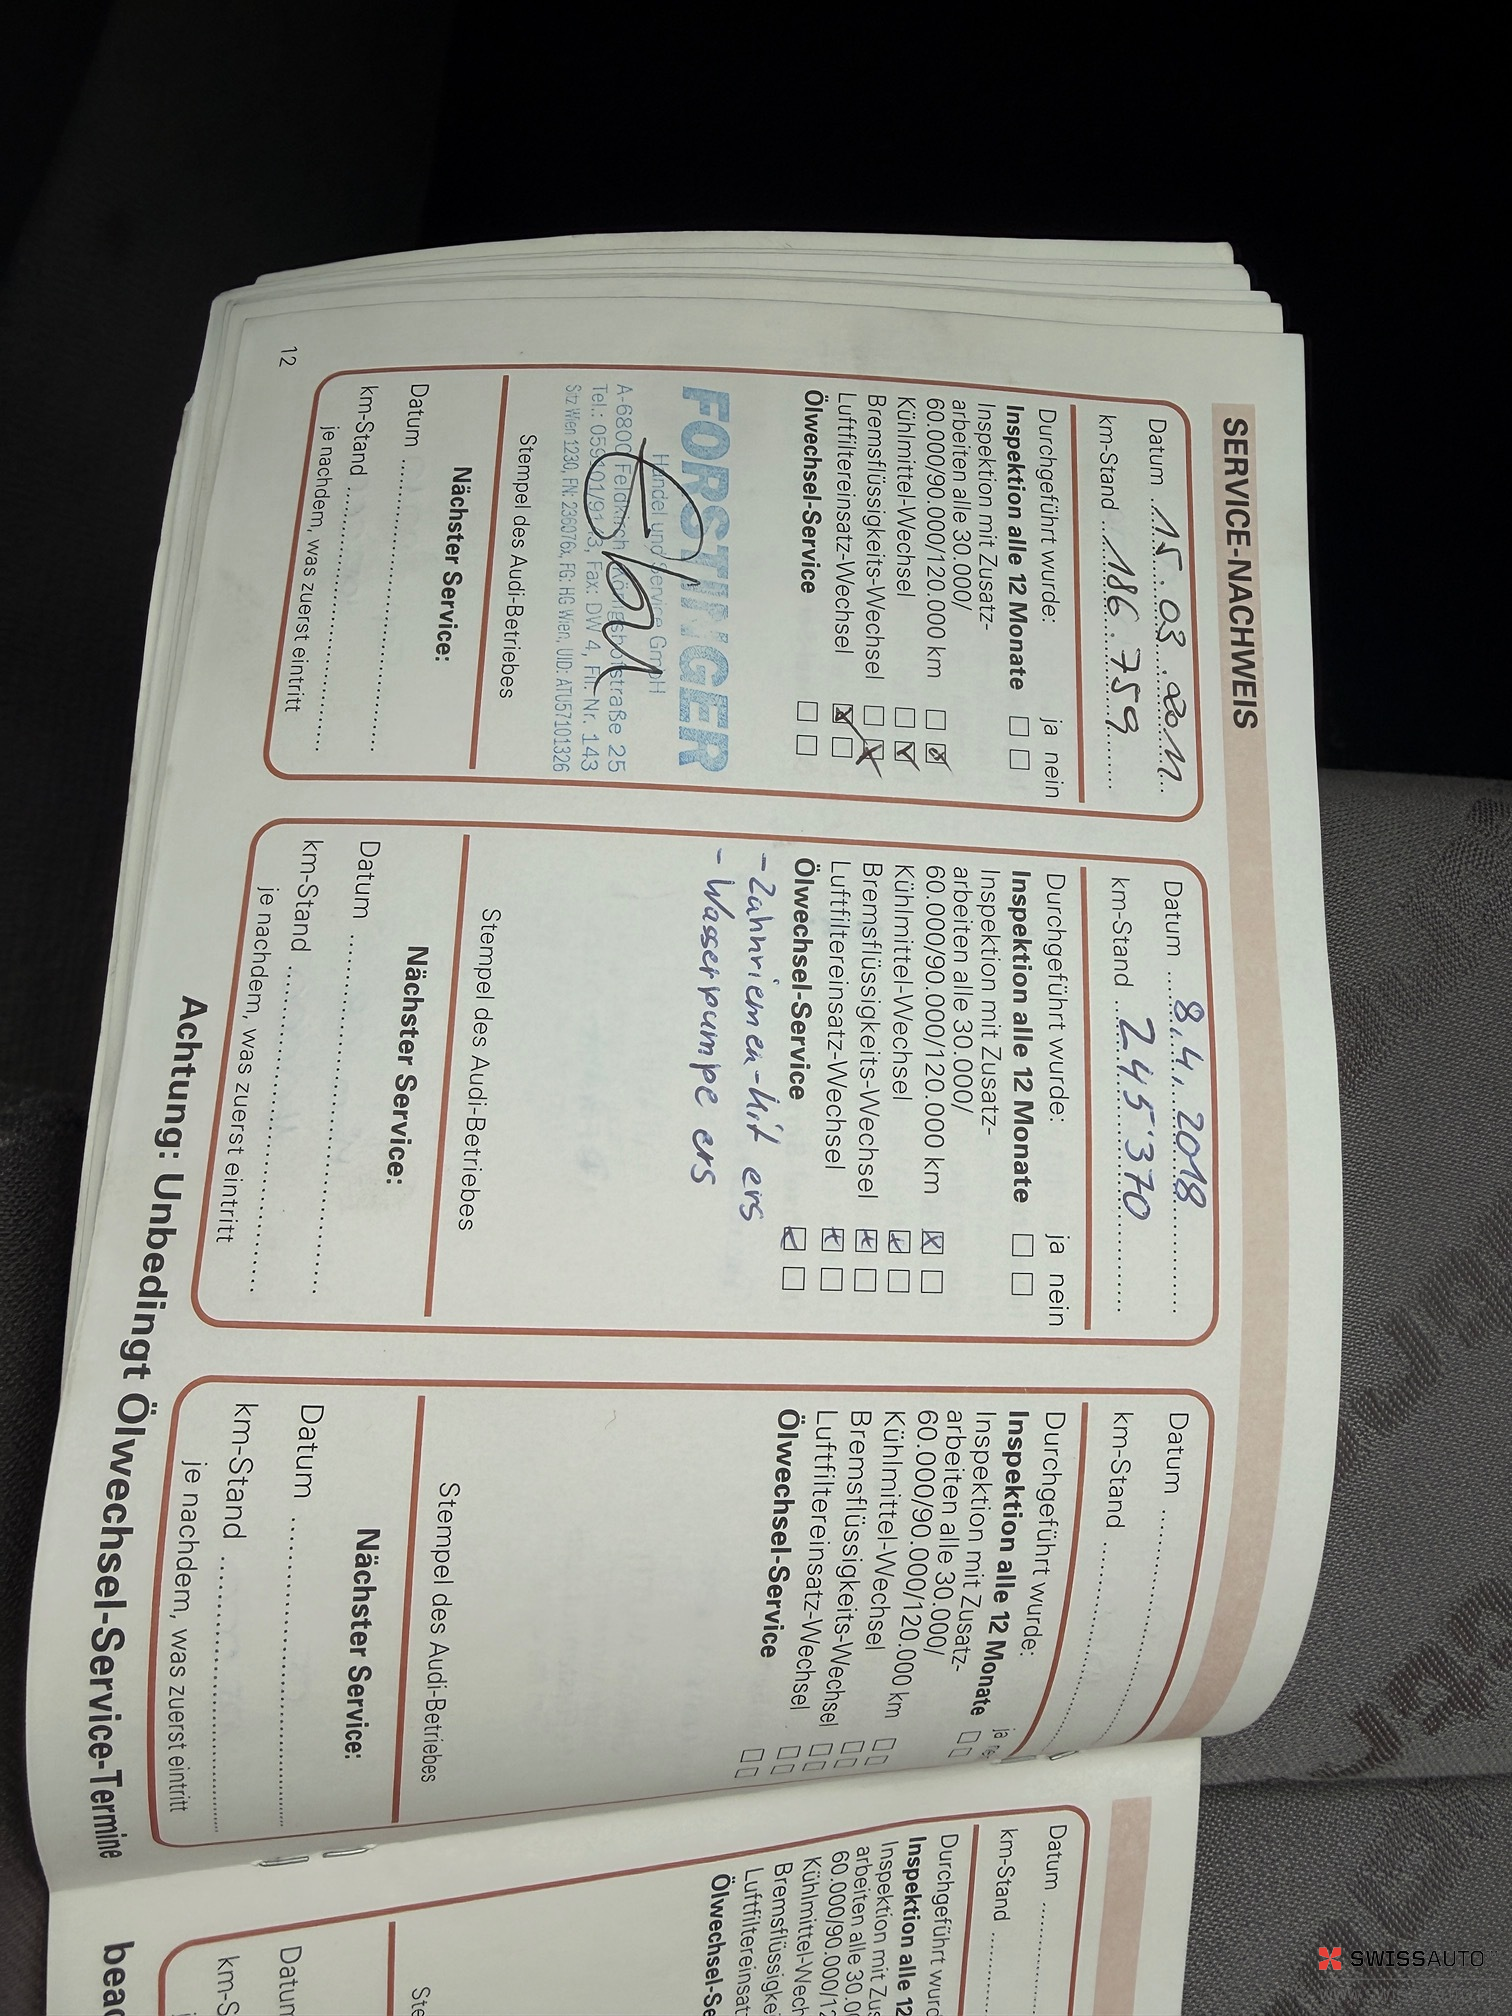 SERVICE-NACHWEIS
Datum 15.03.2011
km-Stand 186.759
Durchgeführt wurde: ja nein
Inspektion alle 12 Monate
Inspektion mit Zusatz-
arbeiten alle 30.000/
60.000/90.000/120.000 km
Kühlmittel-Wechsel
Bremsflüssigkeits-Wechsel
Luftfiltereinsatz-Wechsel
Ölwechsel-Service
FORSTINGER
Handel und Service GmbH
A-6800 Feldkirch, straße 25
Tel.: 059101/9143, Fax: DW 4, Fil. Nr. 143
Sitz Wien 1230, FN: 236076x, FG: HG Wien, UID: ATU57101326
Stempel des Audi-Betriebes
Nächster Service:
Datum
km-Stand
je nachdem, was zuerst eintritt
12
Datum 8.4.2018
km-Stand 245'370
Durchgeführt wurde: ja nein
Inspektion alle 12 Monate
Inspektion mit Zusatz-
arbeiten alle 30.000/
60.000/90.000/120.000 km
Kühlmittel-Wechsel
Bremsflüssigkeits-Wechsel
Luftfiltereinsatz-Wechsel
Ölwechsel-Service
- Zahnriemen-Kit ers
- Wasserpumpe ers
Stempel des Audi-Betriebes
Nächster Service:
Datum
km-Stand
je nachdem, was zuerst eintritt
Datum
km-Stand
Durchgeführt wurde: ja
Inspektion alle 12 Monate
Inspektion mit Zusatz-
arbeiten alle 30.000/
60.000/90.000/120.000 km
Kühlmittel-Wechsel
Bremsflüssigkeits-Wechsel
Luftfiltereinsatz-Wechsel
Ölwechsel-Service
Stempel des Audi-Betriebes
Nächster Service:
Datum
km-Stand
je nachdem, was zuerst eintritt
Achtung: Unbedingt Ölwechsel-Service-Termine
Datum
km-Stand
Durchgeführt wurd
Inspektion alle 12
Inspektion mit Zus
arbeiten alle 30.00
60.000/90.000/12
Kühlmittel-Wech
Bremsflüssigke
Luftfiltereinsat
Ölwechsel-Se
Ste
Datun
km-S
beac
SWISSAUTO